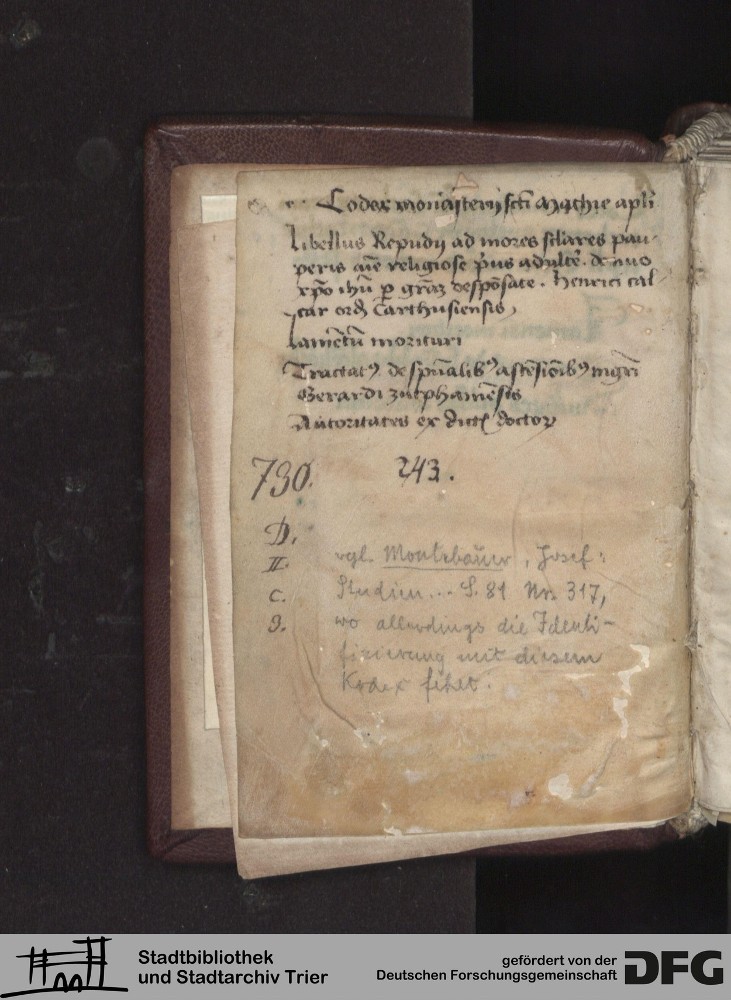 Codex monasterij scti Mathie apli
Libellus Repudij ad mores sclares pau-
peris aīe religiose p̄us adulte. de nuo
xp̄o ihū p grām despōsate. henrici cal-
car ord Carthusiensis
Lamētū morituri
Tractatꝰ de spūalibꝰ ascēsiōibꝰ mgri
Gerardi zutphaniēsis
Autoritates ex dict doctoꝝ
730. 243.
D.
II. vgl. Montebaur, Josef:
C. Studien... S. 81 Nr. 317,
9. wo allerdings die Identi-
fizierung mit diesem
Kodex fehlt.
Stadtbibliothek
und Stadtarchiv Trier
gefördert von der
Deutschen Forschungsgemeinschaft
DFG